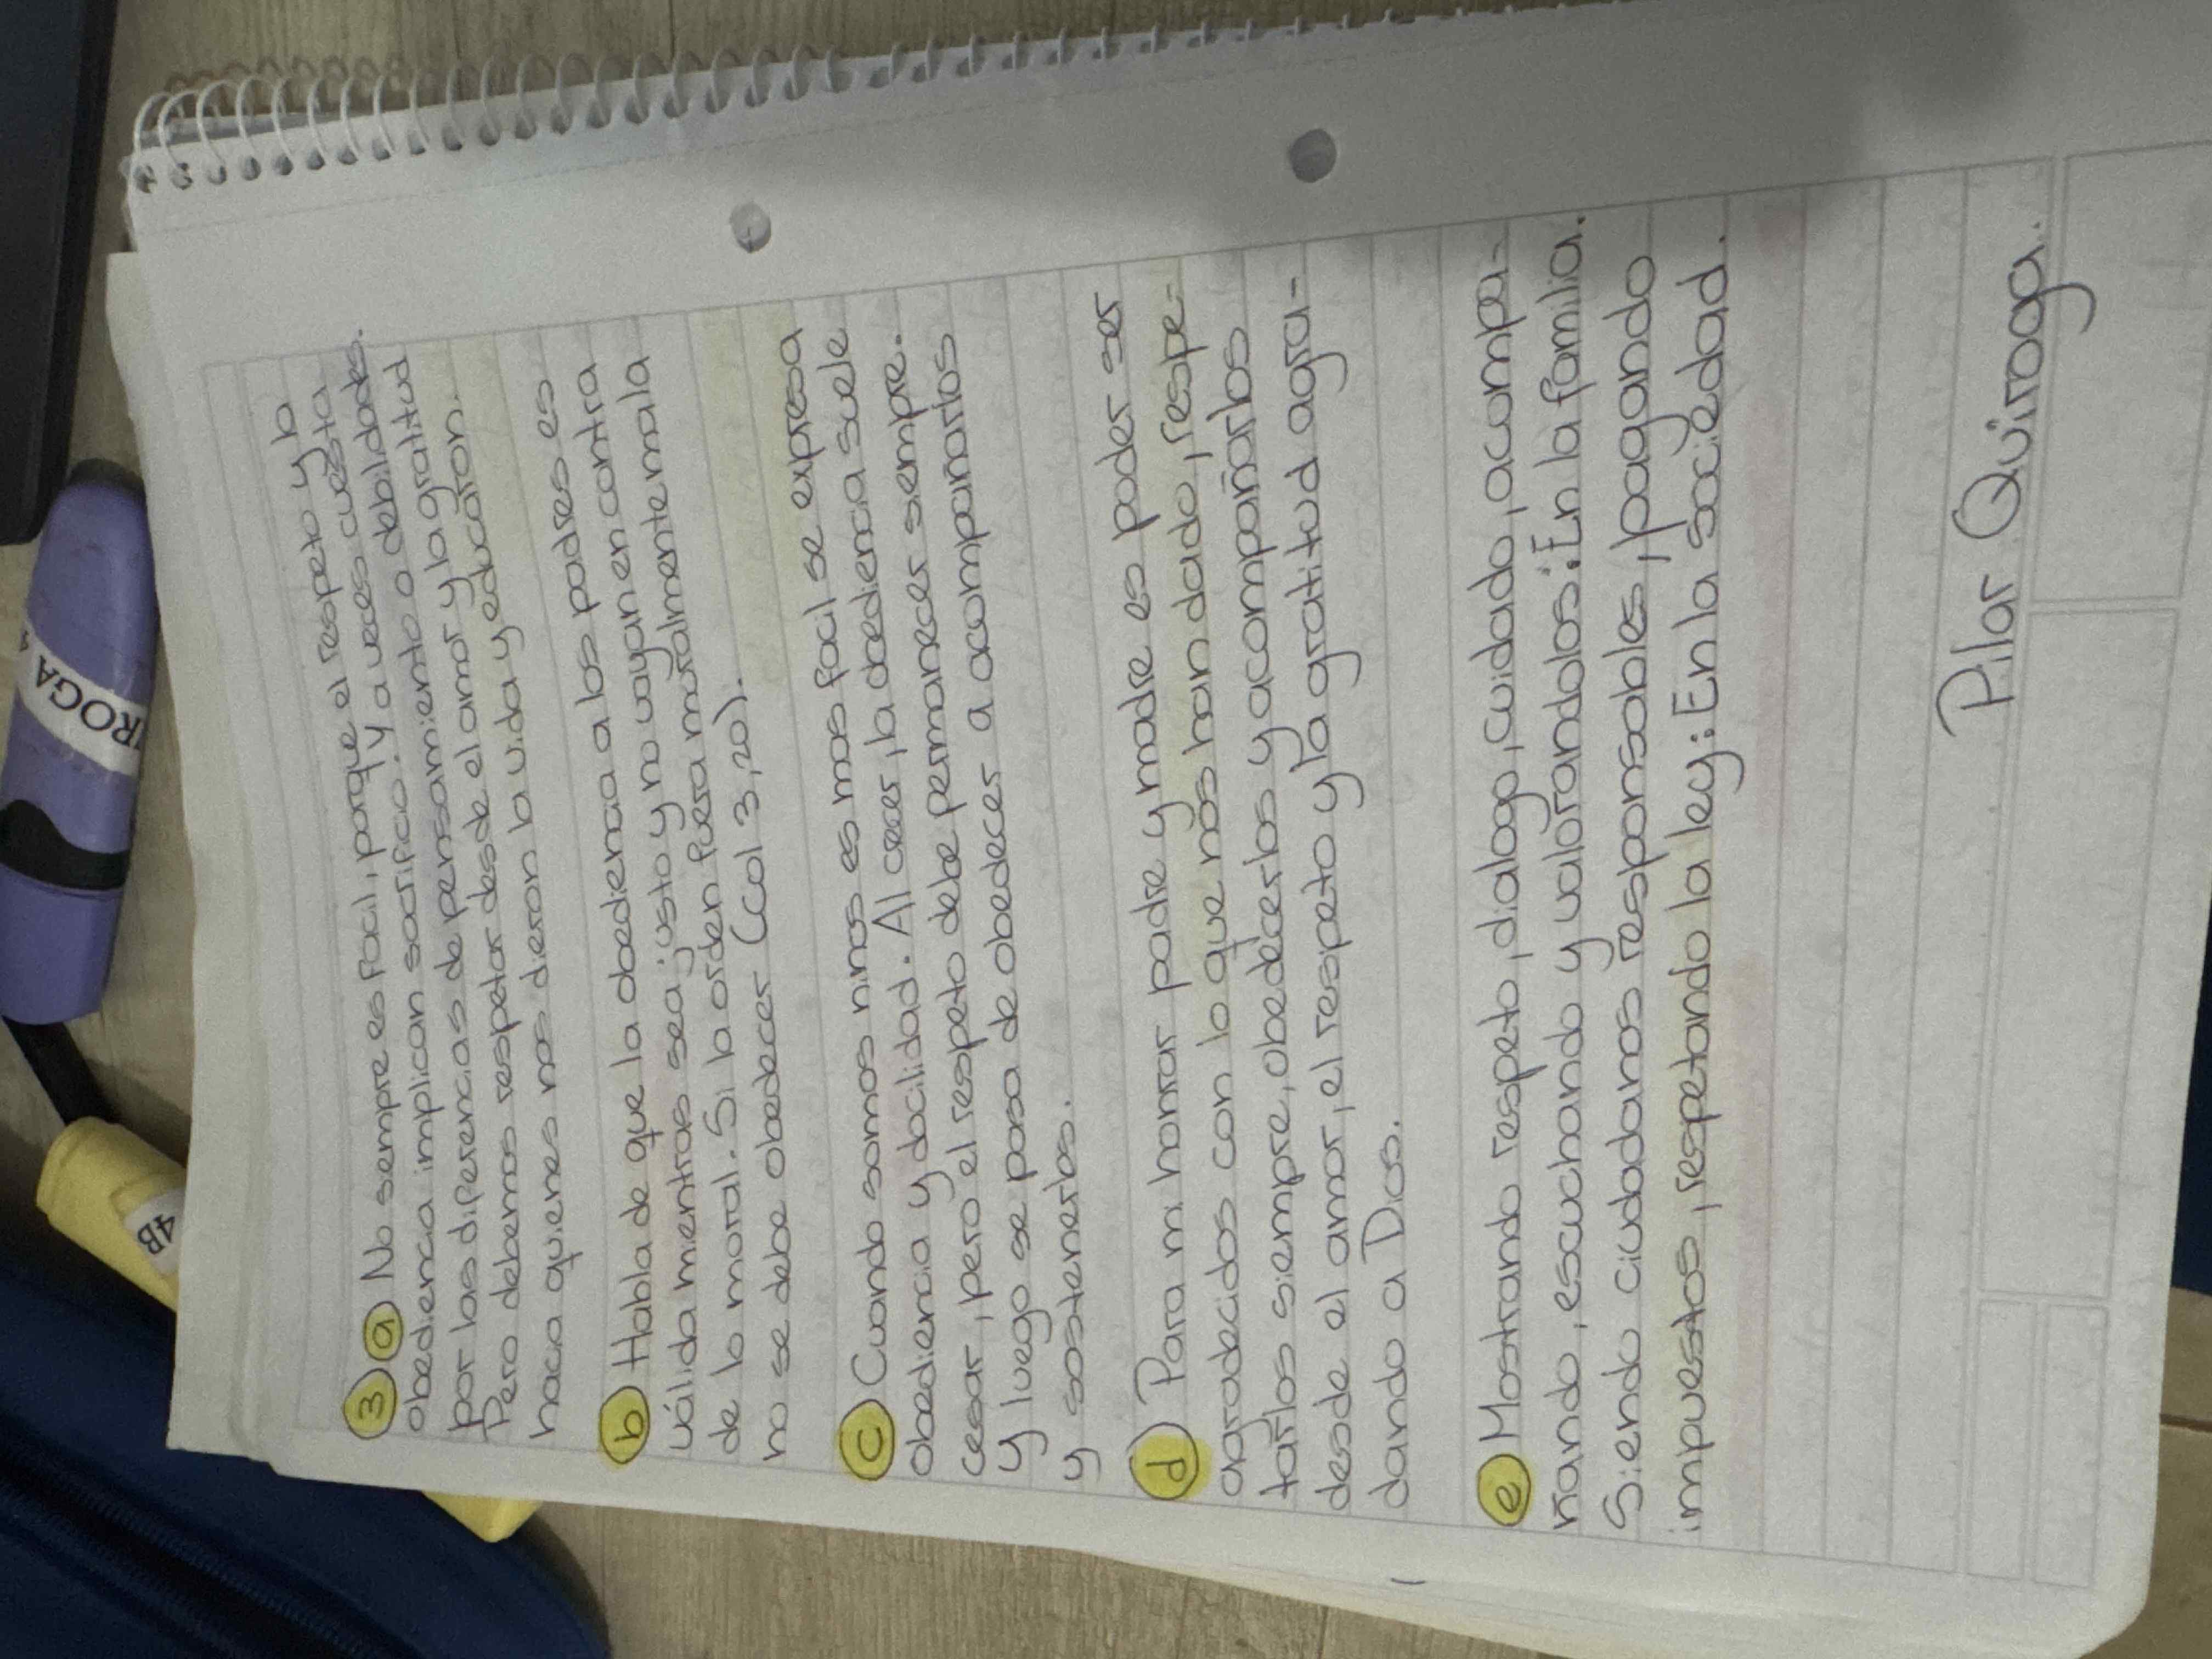 3) a) No sempre es facil, porque el respeto y b
obediencia implican sacrificio. y a veces cuesta
por las diferencias de pensamiento o debilidades.
Pero debemos respetar desde el amor y la gratitud
hacia quienes nos dieron la vida y educaron.
b) Habla de que la obediencia a los padres es
válida mientras sea justo y no vayan en contra
de lo moral. Si la orden fuera moralmente mala
no se debe obedecer (Col 3,20).
c) Cuando somos ninos es mas facil se expresa
obediencia y docilidad. Al crecer, la obediencia suele
cesar, pero el respeto debe permanecer sempre.
y luego se pasa de obedecer a acompañarlos
y sostenerlos.
d) Para mi honrar padre y madre es poder ser
agradecidos con lo que nos han dado, respe-
tarlos siempre, obedecerlos y acompañarlos
desde el amor, el respeto y la gratitud agra-
dando a Dios.
e) Mostrando respeto, dialogo, cuidado, acompa-
ñando, escuchando y valorandolos: En la familia.
Siendo ciudadanos responsables, pagando
impuestos, respetando la ley: En la sociedad.
Pilar Quiroga.
IROGA
4B